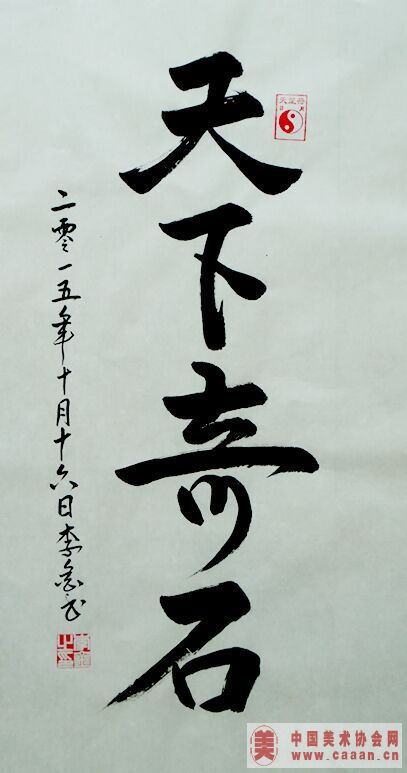 天下奇石
二零一五年十月十六日李
美 中国美术协会网
www.caaan.cn